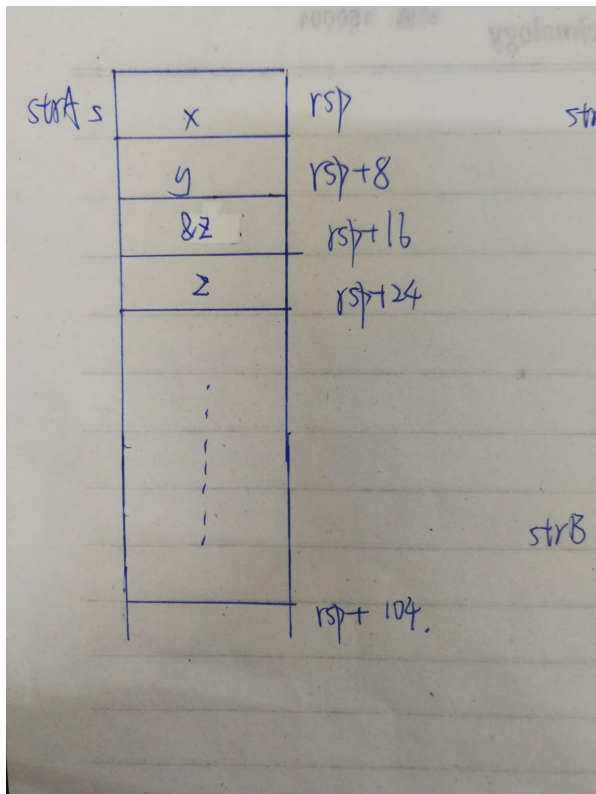 strA s x rsp
str
y rsp+8
&z rsp+16
z rsp+24
strB
rsp+ 104.